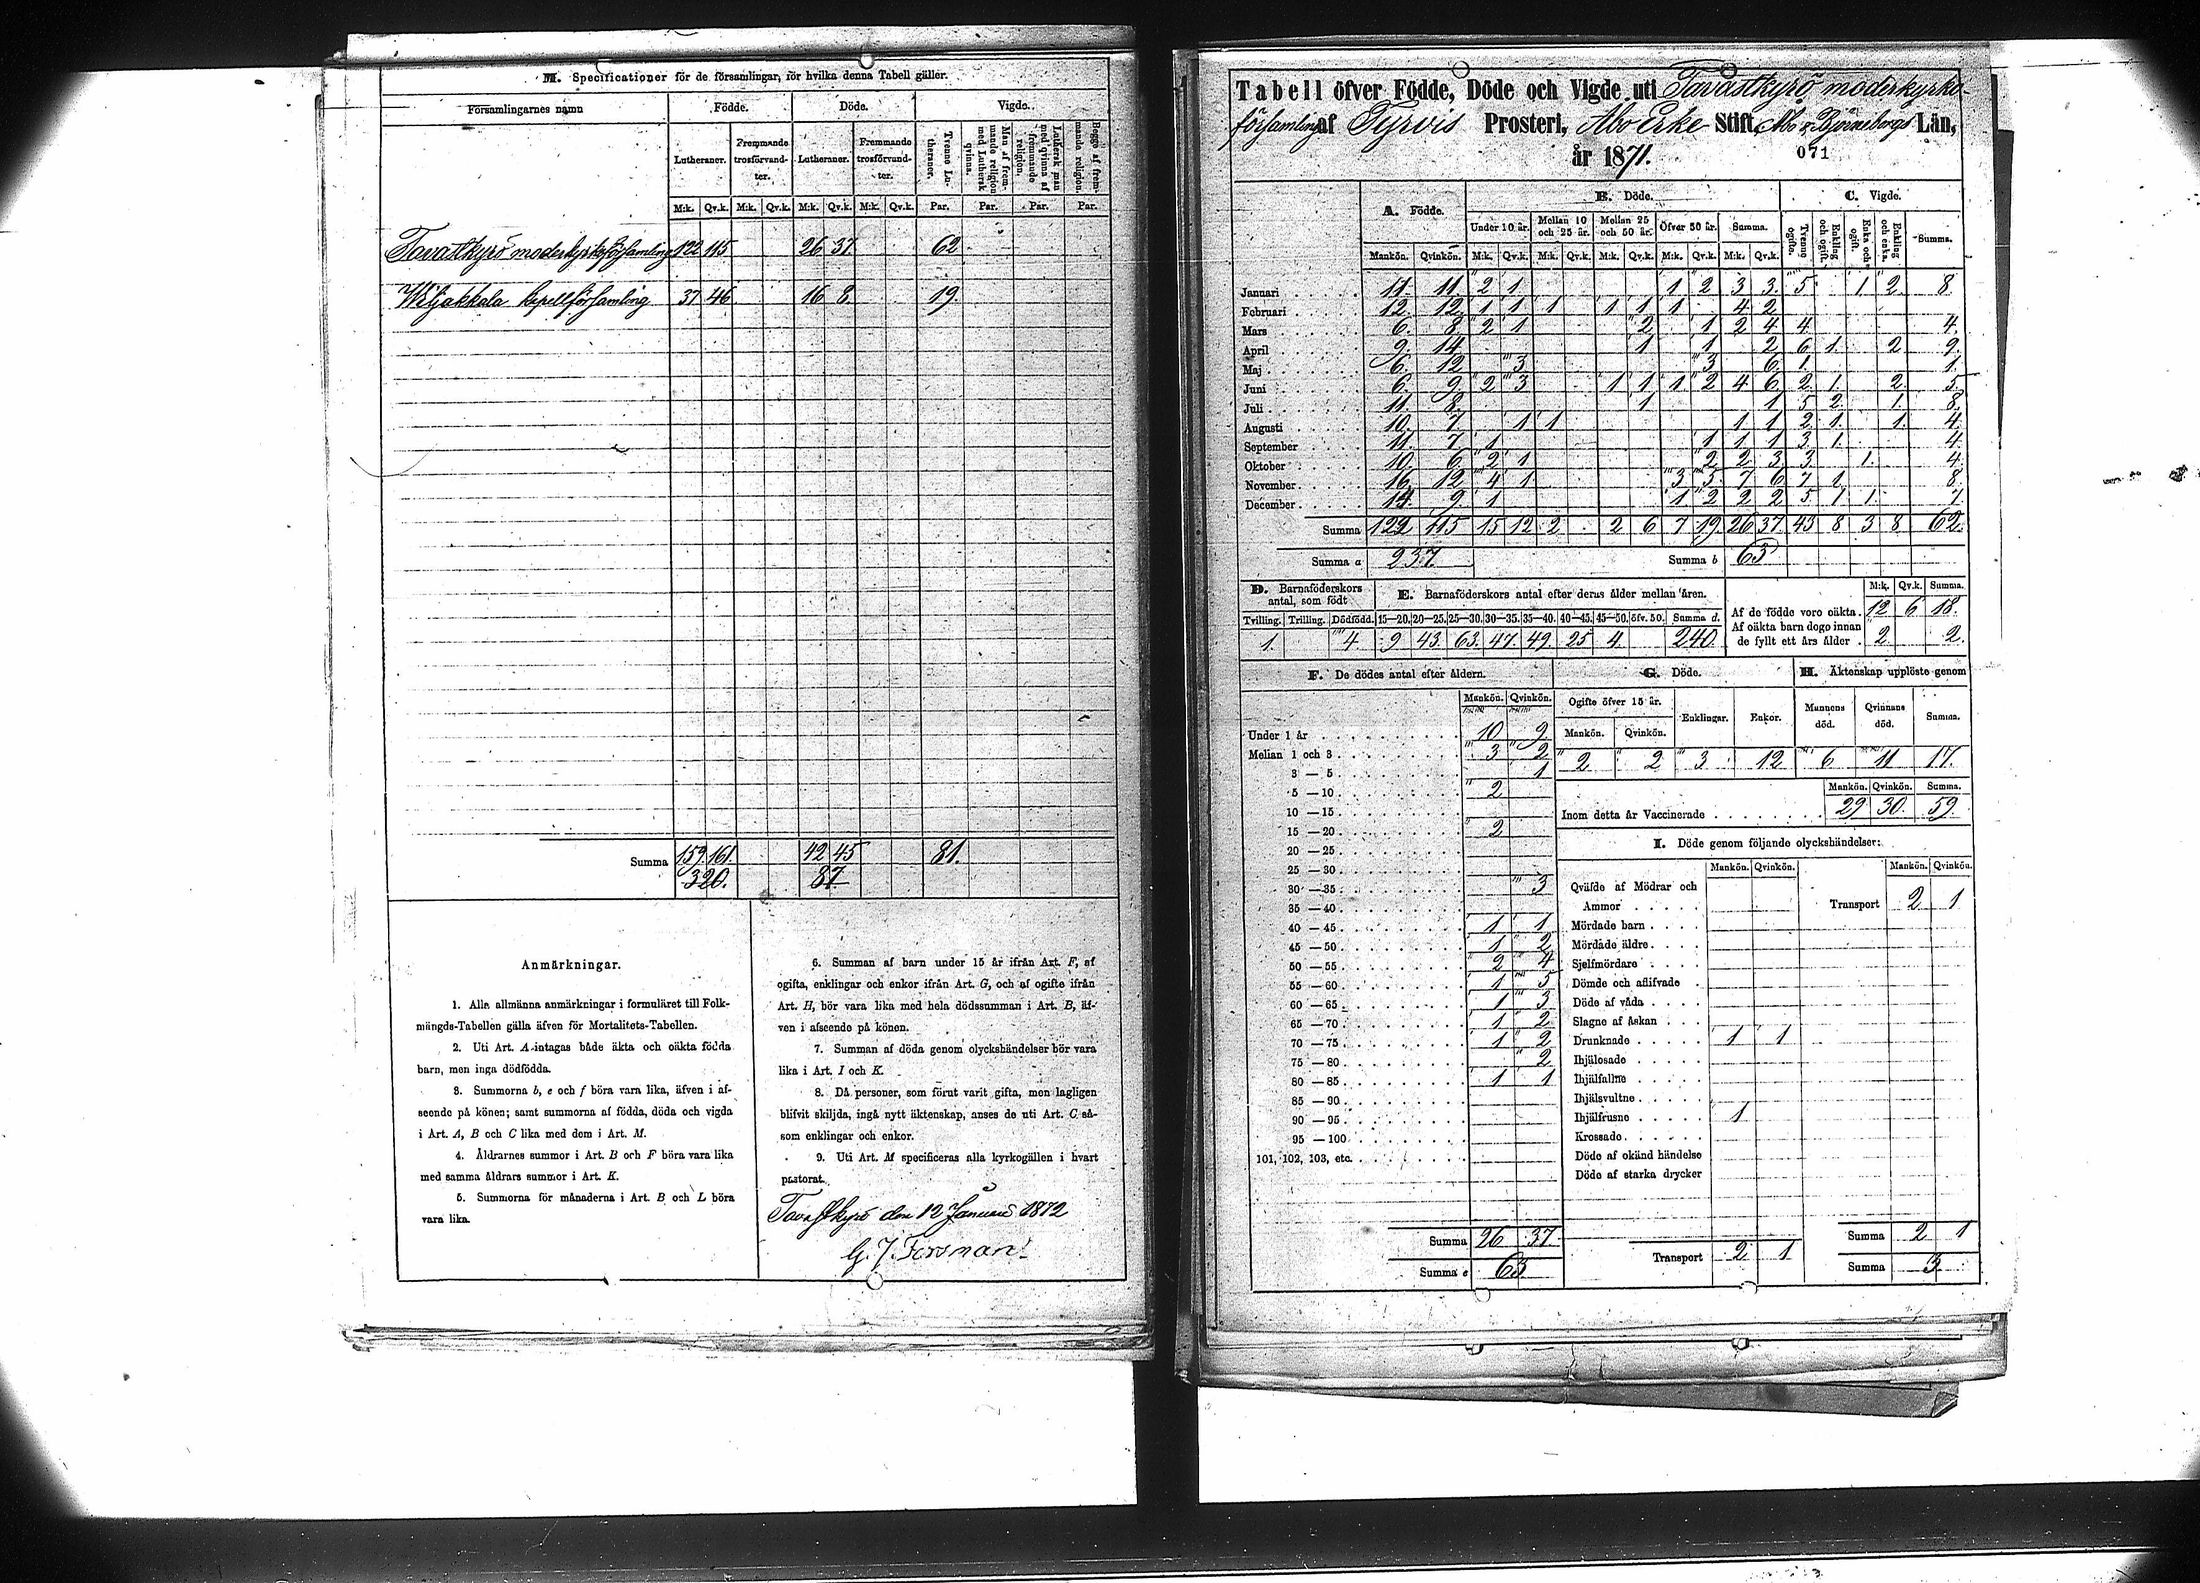 M. Specificationer för de församlingar, för hvilka denna Tabell gäller.
Församlingarnes namn Födde. Döde. Vigde.
Lutheraner. Fremmande trosförvandter. Lutheraner. Fremmande trosförvandter. Tvenne Lutheraner. Man af fremmande religion med Luthersk qvinna. Luthersk man med qvinna af fremmande religion. Begge af fremmande religion.
M:k. Qv.k. M:k. Qv.k. M:k. Qv.k. M:k. Qv.k. Par. Par. Par. Par.
Tavastkyrö moderkyrkoförsamling 122 115 26 37 62
Wiljakkala kapellförsamling 37 46 16 8 19.
Summa 159 161. 42 45 81.
320. 87
Anmärkningar.
1. Alla allmänna anmärkningar i formuläret till Folk-
mängds-Tabellen gälla äfven för Mortalitets-Tabellen.
2. Uti Art. A intagas både äkta och oäkta födda
barn, men inga dödfödda.
3. Summorna b, e och f böra vara lika, äfven i af-
seende på könen; samt summorna af födda, döda och vigda
i Art. A, B och C lika med dem i Art. M.
4. Åldrarnes summor i Art. B och F böra vara lika
med samma åldrars summor i Art. K.
5. Summorna för månaderna i Art. B och L böra
vara lika.
6. Summan af barn under 15 år ifrån Art. F, af
ogifta, enklingar och enkor ifrån Art. G, och af ogifte ifrån
Art. H, bör vara lika med hela dödssumman i Art. B, äf-
ven i afseende på könen.
7. Summan af döda genom olyckshändelser bör vara
lika i Art. I och K.
8. Då personer, som förut varit gifta, men lagligen
blifvit skiljda, ingå nytt äktenskap, anses de uti Art. C så-
som enklingar och enkor.
9. Uti Art. M specificeras alla kyrkogällen i hvart
pastorat.
Tavastkyrö den 12 Januari 1872
G. J. Forsman
Tabell öfver Födde, Döde och Vigde uti Tavastkyrö moderkyrko-
församling af Tyrvis Prosteri, Åbo Erke Stift, Åbo & Björneborgs Län,
år 1871. 071
A. Födde. B. Döde. C. Vigde.
Under 10 år. Mellan 10 och 25 år. Mellan 25 och 50 år. Öfver 50 år. Summa. Tvenne ogifte. Enkling och ogift. Enka och ogift. Enkling och enka. Summa.
Mankön. Qvinkön. M:k. Qv.k. M:k. Qv.k. M:k. Qv.k. M:k. Qv.k. M:k. Qv.k.
Januari 11 11 2 1 1 2 3 3 5 1 2 8
Februari 12 12 1 1 1 1 1 1 4 2
Mars 6. 8 2 1 2 1 2 4 4 4.
April 9. 14 1 1 2 6 1. 2 9.
Maj 6. 12 3 3 6 1. 1.
Juni 6. 9. 2 3 1 1 1 2 4 6 2 1. 2. 5.
Juli 11. 8. 1 1 5 2. 1. 8.
Augusti 10. 7 1 1 1 1 2 1. 1. 4.
September 11. 7 1 1 1 1 3 1. 4.
Oktober 10. 6 2 1 2 2 3 3. 1. 4.
November 16. 12 4 1 3 5 7 6 7 1 8.
December 14. 9. 1 1 2 2 2 5 1 1. 7.
Summa 122 115 15 12 2 2 6 7 19. 26 37 43 8 3 8 62.
Summa a 237 Summa b 63
D. Barnaföderskors antal, som födt E. Barnaföderskors antal efter deras ålder mellan åren. M:k. Qv.k. Summa.
Tvilling. Trilling. Dödfödd. 15—20. 20—25. 25—30. 30—35. 35—40. 40—45. 45—50. öfv. 50. Summa d.
1. 4. 9 43. 63. 47. 49. 25 4. 240.
Af de födde voro oäkta. 12 6 18.
Af oäkta barn dogo innan de fyllt ett års ålder . 2 2.
F. De dödes antal efter åldern.
Mankön. Qvinkön.
Under 1 år 10 9
Mellan 1 och 3 3 2
3 — 5 1
5 — 10 2
10 — 15
15 — 20 2
20 — 25
25 — 30
30 — 35 3
35 — 40
40 — 45 1 1
45 — 50 1 2
50 — 55 2 4
55 — 60 1 5
60 — 65 1 3
65 — 70 1 2
70 — 75 1 2
75 — 80 2
80 — 85 1 1
85 — 90
90 — 95
95 — 100
101, 102, 103, etc.
Summa 26 37.
Summa e 63
G. Döde. H. Äktenskap upplöste genom
Ogifte öfver 15 år. Enklingar. Enkor. Mannens död. Qvinnans död. Summa.
Mankön. Qvinkön.
2 2 3 12 6 11 17.
Mankön. Qvinkön. Summa.
Inom detta år Vaccinerade 29 30. 59.
I. Döde genom följande olyckshändelser:
Mankön. Qvinkön. Mankön. Qvinkön.
Qväfde af Mödrar och
Ammor Transport 2 1
Mördade barn
Mördade äldre
Sjelfmördare
Dömde och aflifvade
Döde af våda
Slagne af åskan
Drunknade 1 1
Ihjälosade
Ihjälfallne
Ihjälsvultne
Ihjälfrusne 1
Krossade
Döde af okänd händelse
Döde af starka drycker
Transport 2 1
Summa 2 1
Summa 3